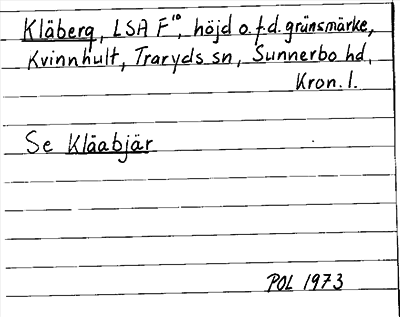 Kläberg, LSA F¹⁰, höjd o. f.d. gränsmärke,
Kvinnhult, Traryds sn, Sunnerbo hd,
Kron. l.
Se Kläabjär
POL 1973